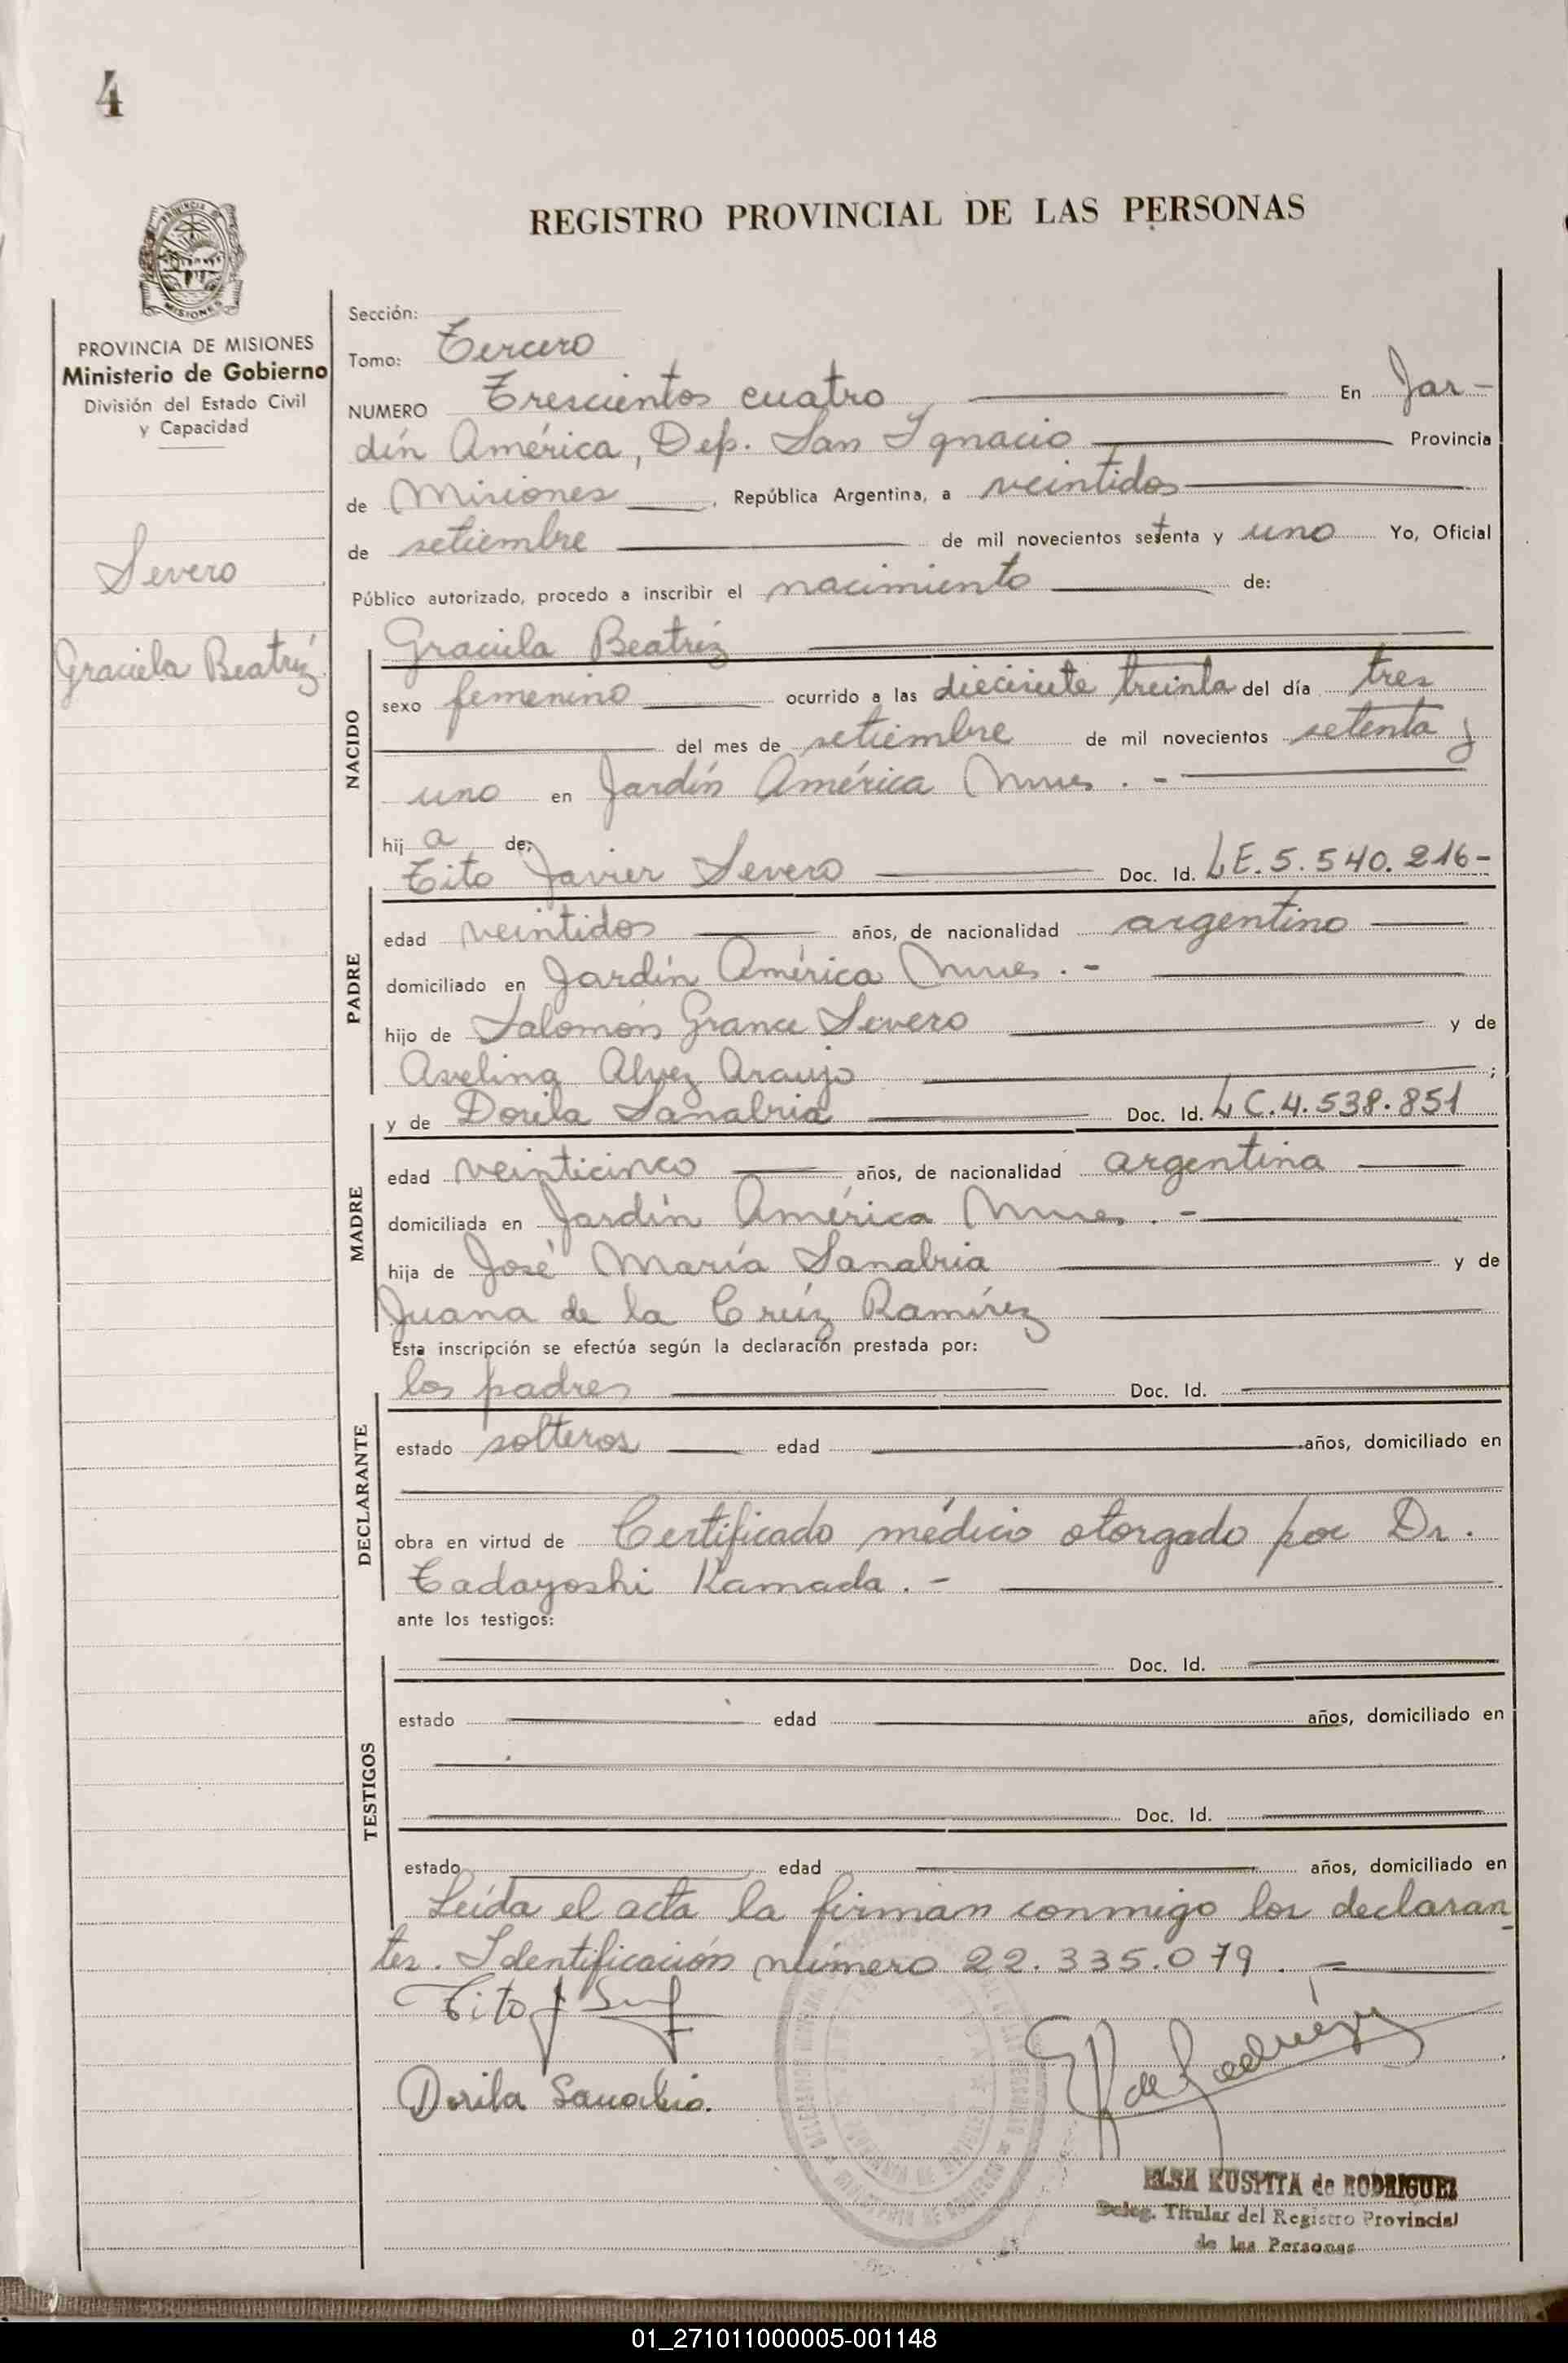 4
PROVINCIA DE MISIONES
MISIONES
REGISTRO PROVINCIAL DE LAS PERSONAS
PROVINCIA DE MISIONES
Ministerio de Gobierno
División del Estado Civil
y Capacidad
Severo
Graciela Beatríz
Sección:
Tomo: Tercero
NUMERO Trescientos cuatro En Jar-
dín América, Dep. San Ignacio Provincia
de Misiones, República Argentina, a veintidos
de setiembre de mil novecientos setenta y uno Yo, Oficial
Público autorizado, procedo a inscribir el nacimiento de:
Graciela Beatríz
NACIDO
sexo femenino ocurrido a las diecisiete treinta del día tres
del mes de setiembre de mil novecientos setenta y
uno en Jardín América Mnes. -
hij a de:
Tito Javier Severo Doc. Id. L.E. 5.540.216-
PADRE
edad veintidos años, de nacionalidad argentino
domiciliado en Jardín América Mnes. -
hijo de Salomón Grance Severo y de
Avelina Alvez Araujo ;
y de Dorila Sanabria Doc. Id. L.C. 4.538.851
MADRE
edad veinticinco años, de nacionalidad argentina
domiciliada en Jardín América Mnes. -
hija de José María Sanabria y de
Juana de la Crúz Ramírez
Esta inscripción se efectúa según la declaración prestada por:
los padres Doc. Id.
DECLARANTE
estado solteros edad años, domiciliado en
obra en virtud de Certificado médico otorgado por Dr.
Tadayoshi Kamada. -
ante los testigos:
TESTIGOS
Doc. Id.
estado edad años, domiciliado en
Doc. Id.
estado edad años, domiciliado en
Leída el acta la firman conmigo los declaran
tes. Identificación número 22.335.079. -
Tito J
Dorila Sanabria.
de Rodríguez
ELSA KUSPITA de RODRIGUEZ
Deleg. Titular del Registro Provincial
de las Personas
01_271011000005-001148